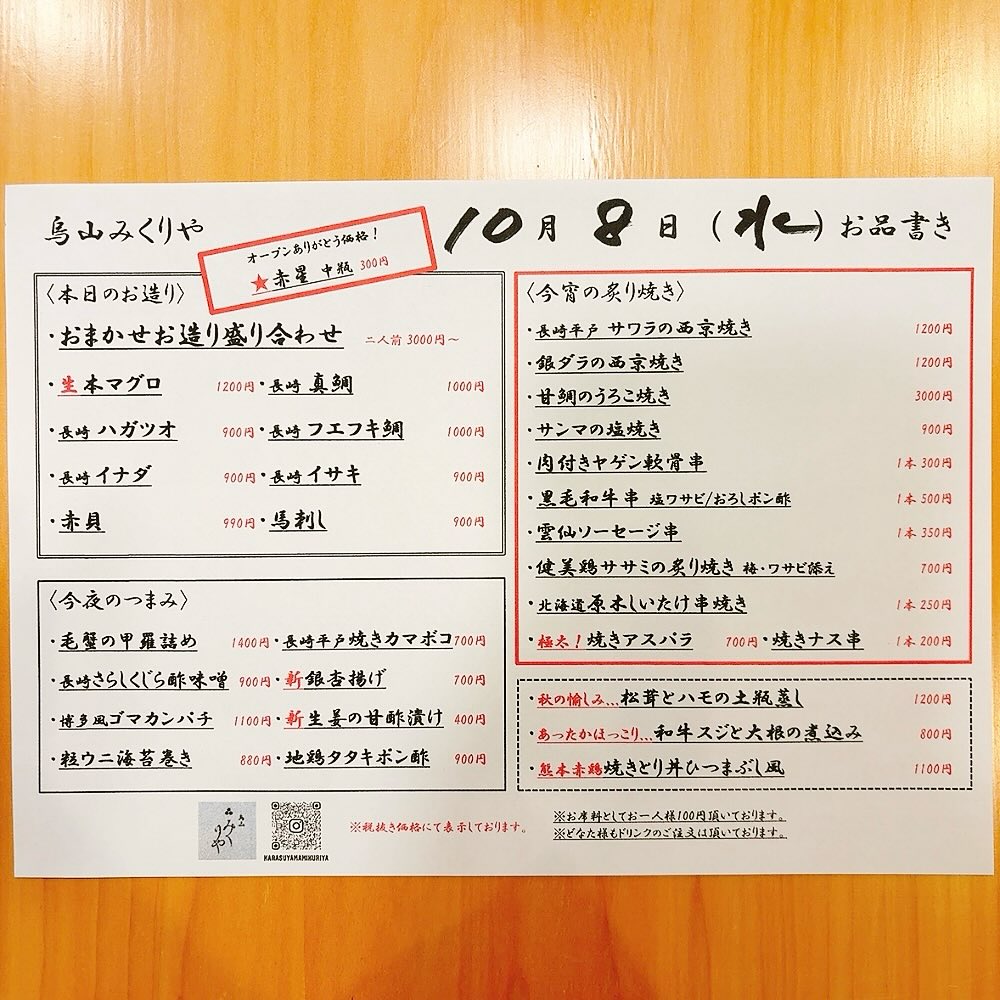 烏山みくりや
オープンありがとう価格！
★赤星 中瓶 300円
10月 8日 (水) お品書き
〈本日のお造り〉
・おまかせお造り盛り合わせ 二人前 3000円～
・生本マグロ 1200円・長崎 真鯛 1000円
・長崎 ハガツオ 900円・長崎 フエフキ鯛 1000円
・長崎 イナダ 900円・長崎 イサキ 900円
・赤貝 990円・馬刺し 900円
〈今夜のつまみ〉
・毛蟹の甲羅詰め 1400円・長崎平戸焼きカマボコ700円
・長崎さらしくじら酢味噌 900円・新銀杏揚げ 700円
・博多風ゴマカンパチ 1100円・新生姜の甘酢漬け 400円
・粒ウニ海苔巻き 880円・地鶏タタキポン酢 900円
〈今宵の炙り焼き〉
・長崎平戸 サワラの西京焼き 1200円
・銀ダラの西京焼き 1200円
・甘鯛のうろこ焼き 3000円
・サンマの塩焼き 900円
・肉付きヤゲン軟骨串 1本 300円
・黒毛和牛串 塩ワサビ/おろしポン酢 1本 500円
・雲仙ソーセージ串 1本 350円
・健美鶏ササミの炙り焼き 梅・ワサビ添え 700円
・北海道原木しいたけ串焼き 1本 250円
・極太！焼きアスパラ 700円・焼きナス串 1本 200円
・秋の愉しみ…松茸とハモの土瓶蒸し 1200円
・あったかほっこり…和牛スジと大根の煮込み 800円
・熊本赤鶏焼きとり丼ひつまぶし風 1100円
烏山
みく
りや
KARASUYAMAMIKURIYA
※税抜き価格にて表示しております。
※お席料としてお一人様100円頂いております。
※どなた様もドリンクのご注文は頂いております。